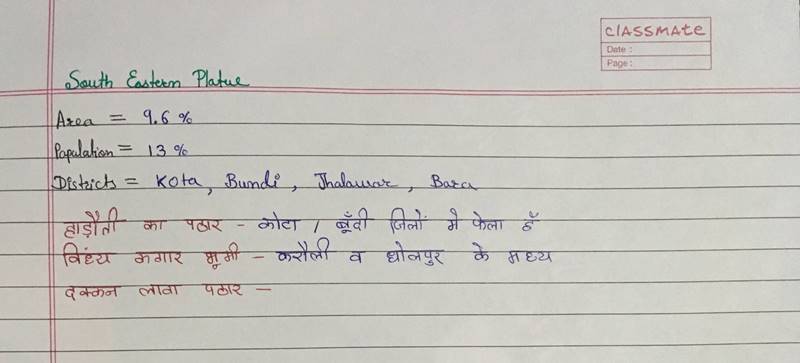 CLASSMATE
Date :
Page :
South Eastern Platue
Area = 9.6 %
Papulation = 13 %
Districts = Kota, Bundi, Jhalawar, Bara
हाड़ौती का पठार - कोटा / बूँदी जिलों मे फेला हँ
विंध्य कगार भूमी - करौली व धोलपुर के मध्य
दक्कन लावा पठार -